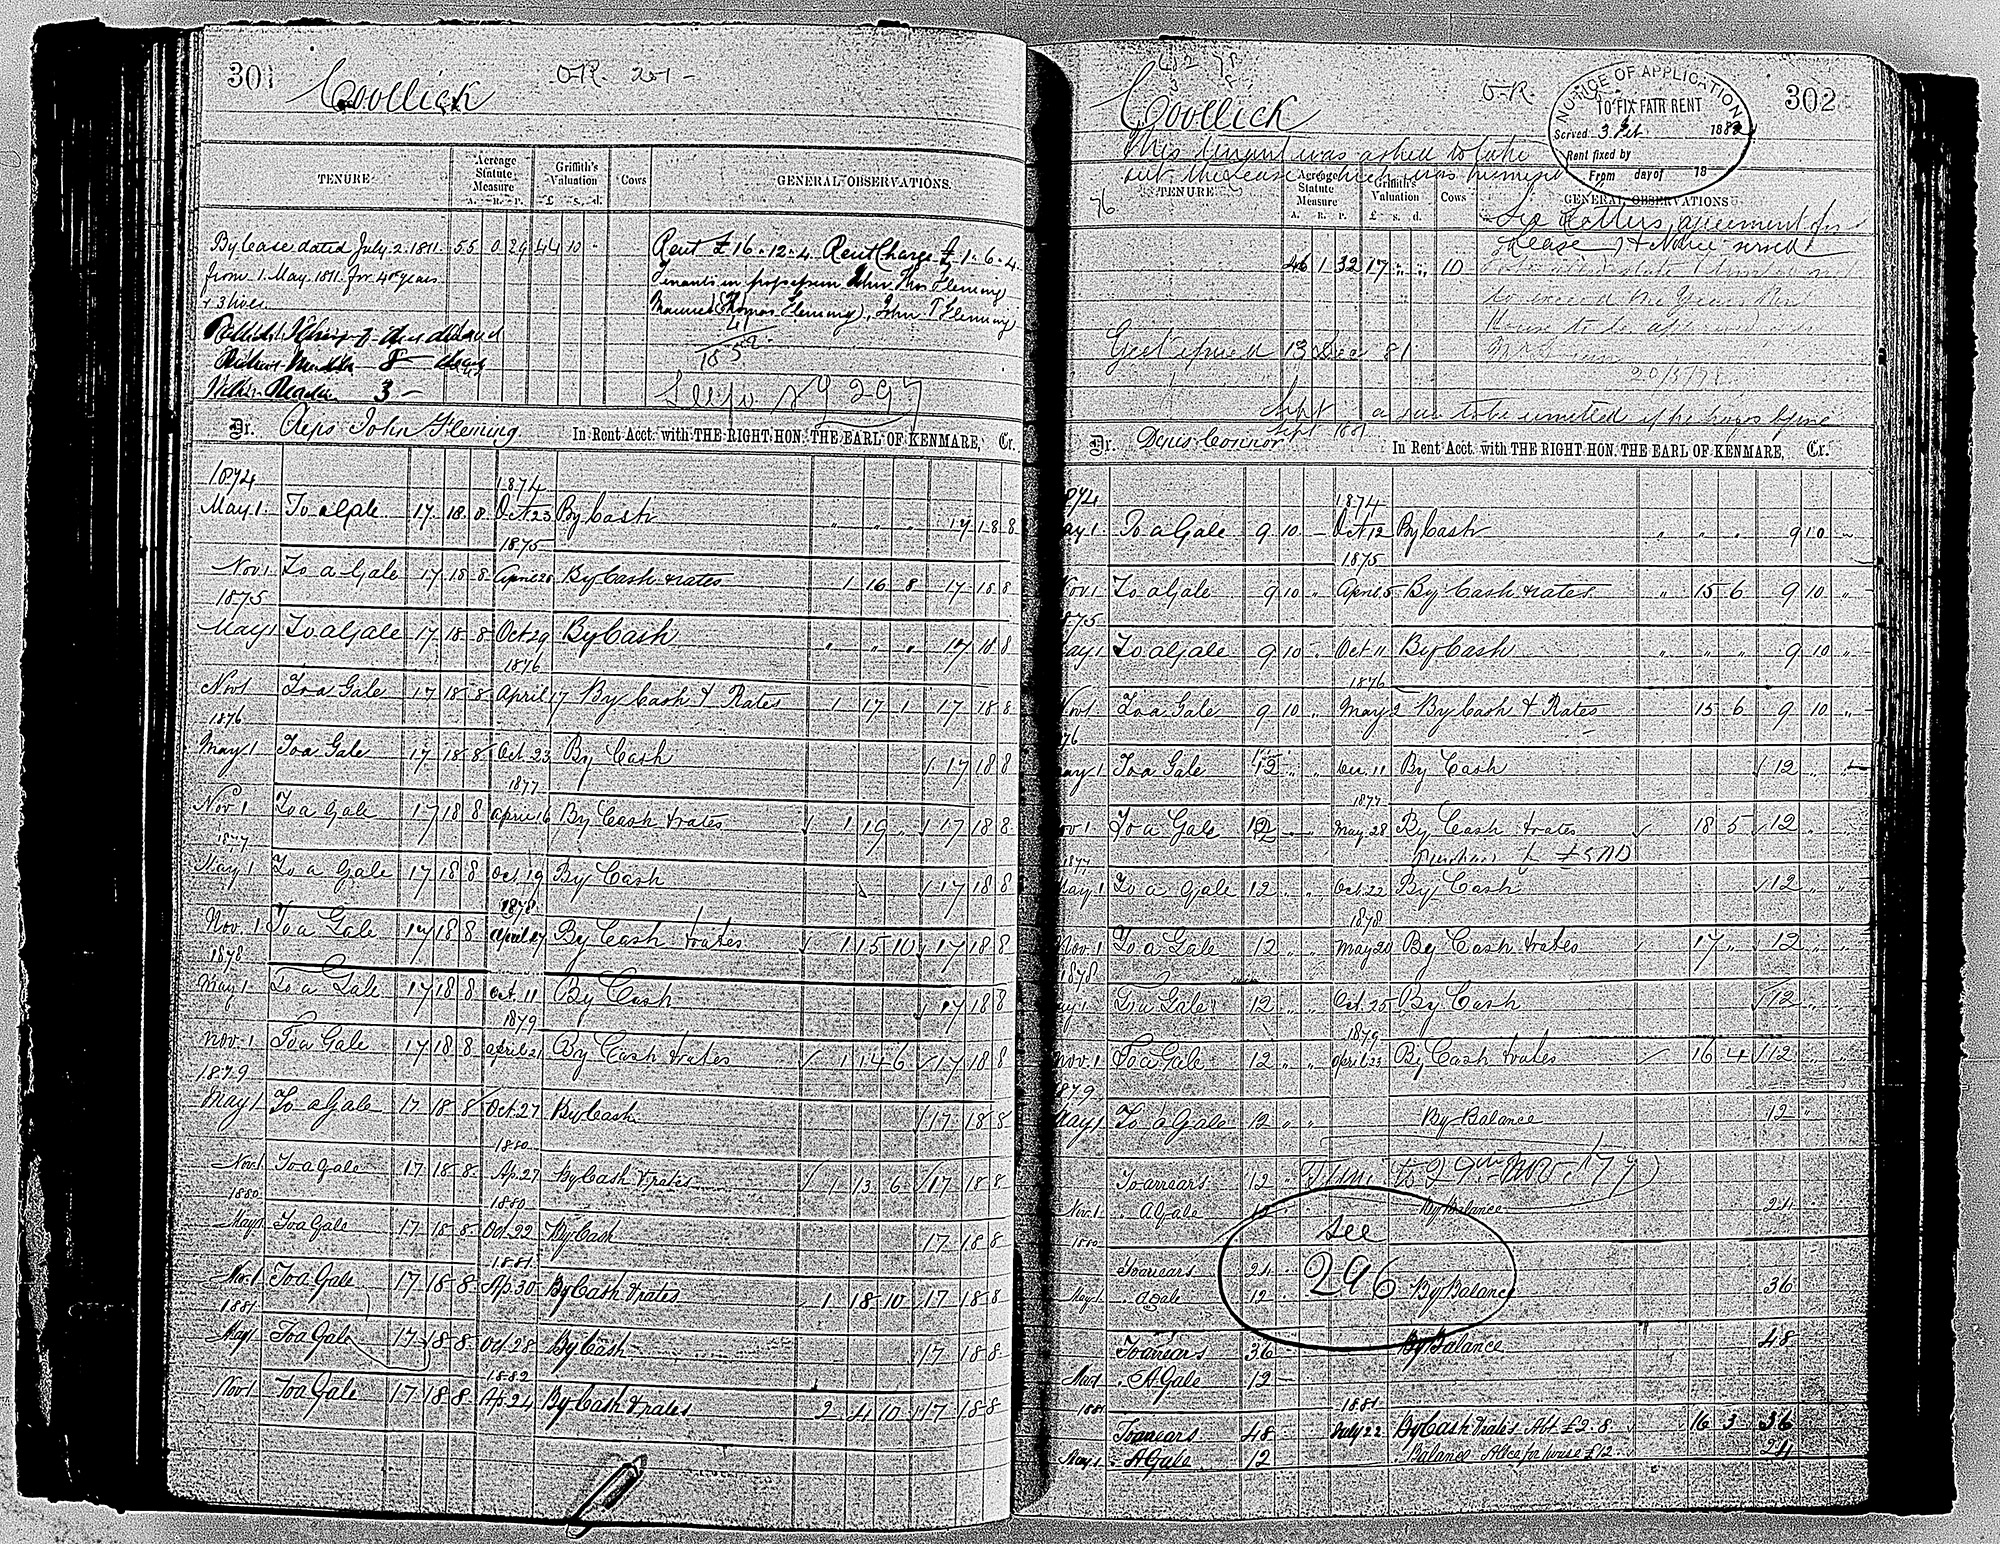 301 Coollick O.R. 201 -
TENURE Acreage Statute Measure A. R. P. Griffith's Valuation £ s. d. Cows GENERAL OBSERVATIONS.
By Lease dated July 2. 1811. 55 0 29 44 10 - Rent £16-12-4 Rent Charge £1-6-4
from 1. May. 1811. for 41 years Tenants in John Thos Fleming
+ 3 lives Maurice Thomas Fleming, John T Fleming
8
3 - See fo 297
Dr. Reps John Fleming In Rent Acct. with THE RIGHT HON. THE EARL OF KENMARE, Cr.
1874 1874
May 1. To a Gale 17. 18. 8 Oct 23 By Cash " " " 17 18 8
1875
Nov 1 To a Gale 17 18 8 April 28 By Cash & rates 1 16 8 17 18 8
1875
May 1 To a Gale 17 18 8 Oct 29 By Cash " " " 17 18 8
1876
Nov 1 To a Gale 17 18 8 April 17 By Cash & Rates 1 17 1 17 18 8
1876
May 1 To a Gale 17 18 8 Oct. 23 By Cash 17 18 8
1877
Nov 1 To a Gale 17 18 8 April 16 By Cash & rates 1 19 " 17 18 8
1877
May 1 To a Gale 17 18 8 Oct. 19 By Cash 17 18 8
1878
Nov. 1 To a Gale 17 18 8 April 17 By Cash & rates 1 15 10 17 18 8
1878
May 1. To a Gale 17 18 8 Oct. 11 By Cash 17 18 8
1879
Nov. 1 To a Gale 17 18 8 April 21 By Cash & rates 1 14 6 17 18 8
1879
May 1 To a Gale 17 18 8 Oct. 27 By Cash 17 18 8
1880
Nov. 1 To a Gale 17 18 8 Ap. 27 By Cash & rates 1 13 6 17 18 8
1880 1880
May 1 To a Gale 17 18 8 Oct. 22 By Cash 17 18 8
1881
Nov. 1 To a Gale 17 18 8 Ap. 30 By Cash & rates 1 18 10 17 18 8
1881
May 1 To a Gale 17 18 8 Oct 28 By Cash 17 18 8
1882
Nov 1 To a Gale 17 18 8 Ap. 24 By Cash & rates 2 4 10 17 18 8
Coollick O.R. 302
NOTICE OF APPLICATION
TO FIX FAIR RENT
Served 3 188
Rent fixed by
From day of 18
This tenant was asked to take
out the lease which was
76 TENURE Acreage Statute Measure A. R. P. Griffith's Valuation £ s. d. Cows GENERAL OBSERVATIONS
See Letters agreement for
Lease & Notice served
46 1 32 17 " " 10
to exceed one Years Rent
House to be approved
Eject issued 13 Dec 81
20/5/78
Sept a year to be remitted if he pays before
Sept 1881
Dr. Denis Connor In Rent Acct. with THE RIGHT HON. THE EARL OF KENMARE, Cr.
1874 1874
May 1 To a Gale 9 10 - Oct 12 By Cash " " " 9 10 "
1875
Nov 1 To a Gale 9 10 " April 5 By Cash & rates " 15 6 9 10 "
1875
May 1 To a Gale 9 10 " Oct 11 By Cash " " " 9 10 "
1876
Nov 1 To a Gale 9 10 " May 2 By Cash & Rates 15 6 9 10 "
76
May 1 To a Gale 12 " " Dec. 11 By Cash 12 " "
1877
Nov 1 To a Gale 12 " " May 28 By Cash & rates 18 5 12 " "
1877
May 1 To a Gale 12 " " Oct. 22 By Cash 12 " "
1878
Nov. 1 To a Gale 12 " " May 20 By Cash & rates 17 " 12 " "
1878
May 1 To a Gale 12 " " Oct. 25 By Cash 12 " "
1879
Nov. 1 To a Gale 12 " " April 23 By Cash & rates 16 4 12 " "
1879
May 1 To a Gale 12 " " By Balance 12 "
To arrears 12 "
Nov. 1 " A Gale 12 By Balance 24
1880 See
To arrears 24 " 296
May 1 " A Gale 12 By Balance 36
To arrears 36 By Balance 48
Nov 1 " A Gale 12
1881 1881
To arrears 48 July 22 By Cash & rates Abt. £2.8. 16 3 36
May 1. " A Gale 12 Balance - Allce for house £12 24